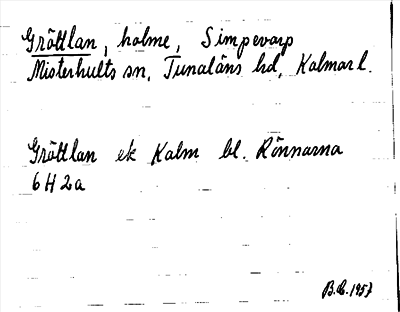 Gröttlan, holme, Simpevarp
Misterhults sn, Tunaläns hd, Kalmar l.
Gröttlan ek Kalm bl. Rönnarna
6 H 2 a
B.E. 1957